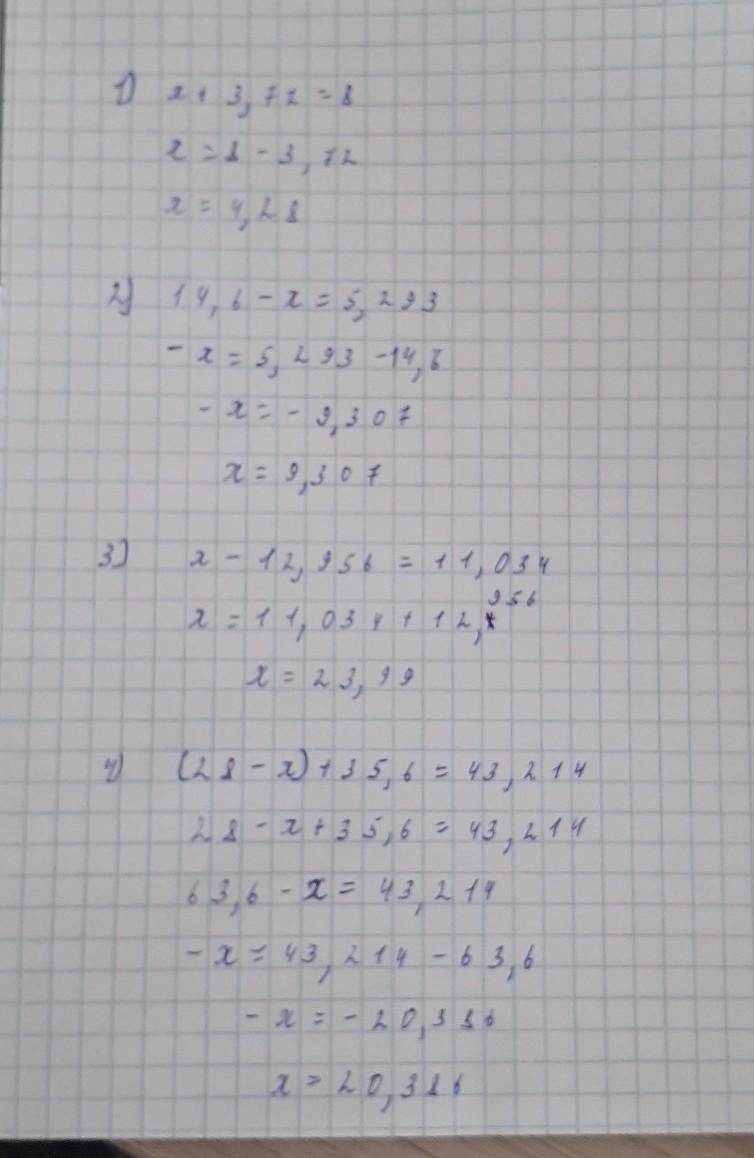 1) x + 3,72 = 8
x = 8 - 3,72
x = 4,28
2) 14,6 - x = 5,293
- x = 5,293 - 14,6
- x = - 9,307
x = 9,307
3) x - 12,956 = 11,034
x = 11,034 + 12,956
x = 23,99
4) (28 - x) + 35,6 = 43,214
28 - x + 35,6 = 43,214
63,6 - x = 43,214
- x = 43,214 - 63,6
- x = - 20,386
x = 20,386